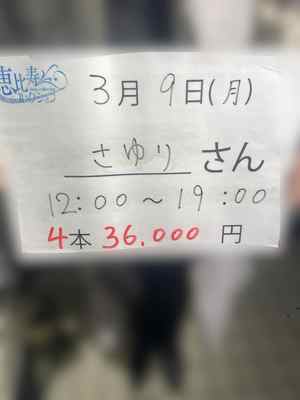 恵比寿
3月 9日(月)
さゆり さん
12:00 ～ 19:00
4本 36.000 円